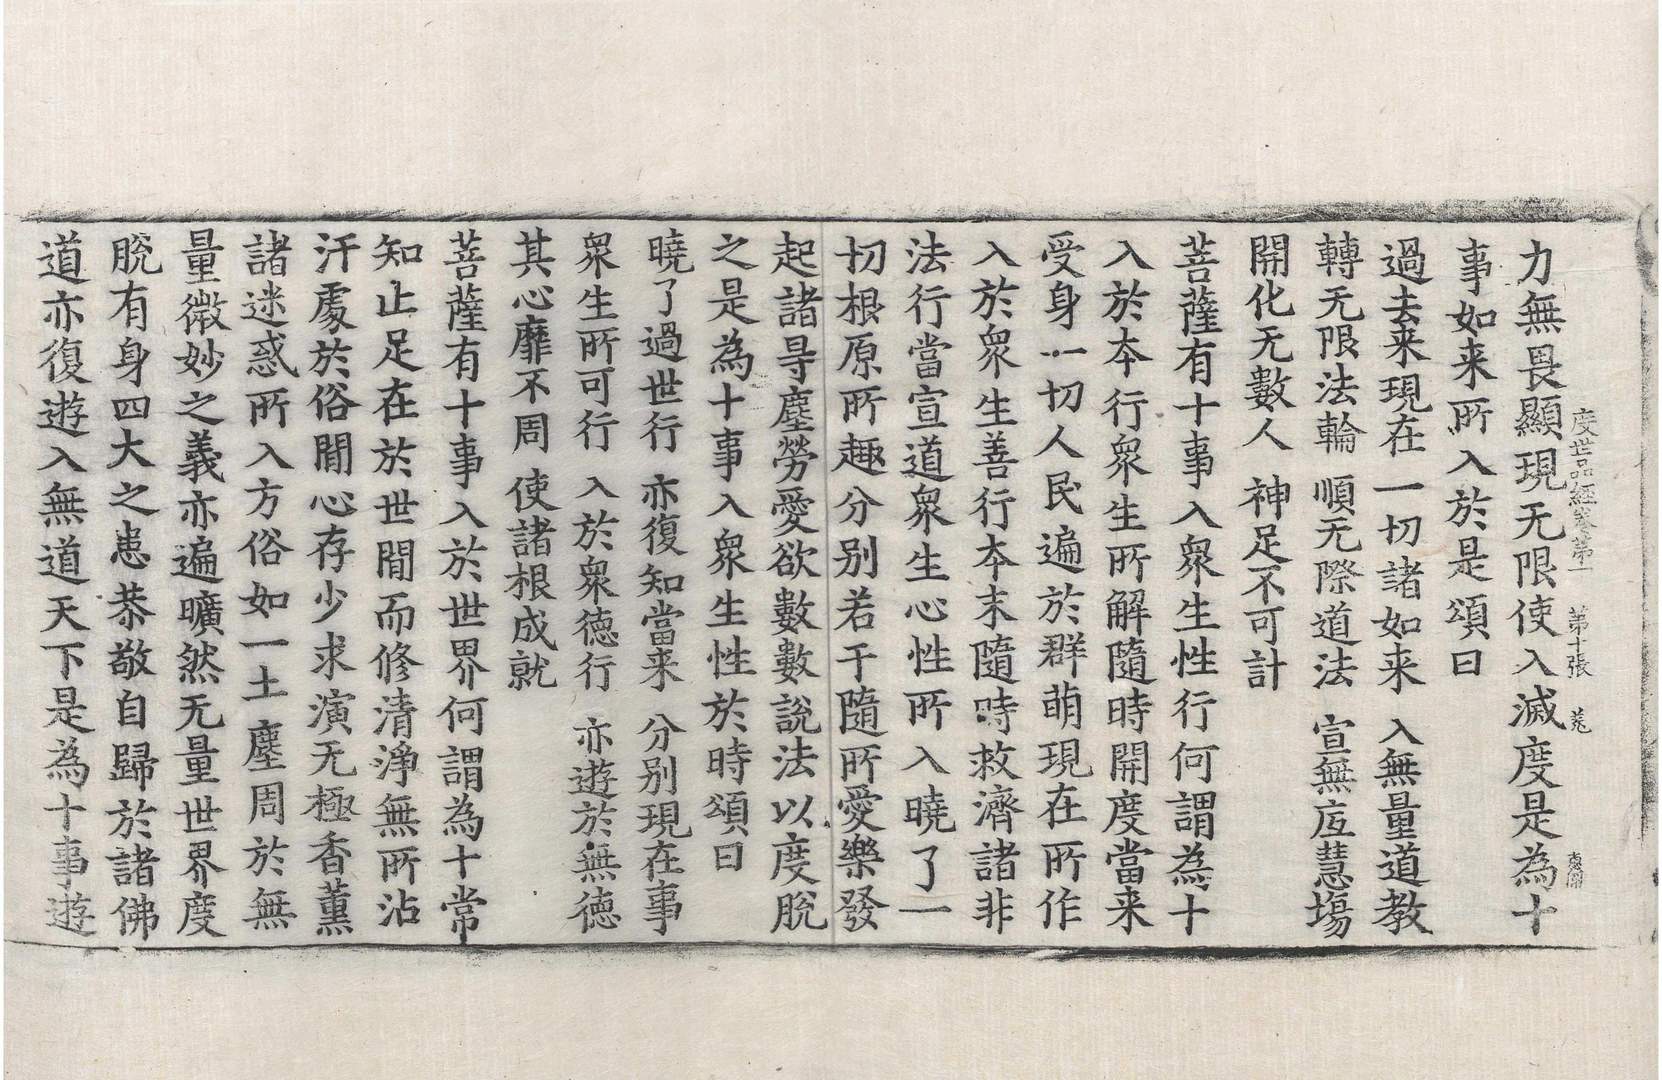 度世品経卷第一 第十張
力無畏顯現无限使入滅度是為十
事如来所入於是頌曰
過去来現在 一切諸如来 入無量道教
轉无限法輪 順无際道法 宣無底慧場
開化无數人 神足不可計
菩薩有十事入眾生性行何謂為十
入於本行眾生所解隨時開度當来
受身一切人民遍於群萌現在所作
入於眾生善行本末隨時救濟諸非
法行當宣道眾生心性所入曉了一
切根原所趣分別若干隨所愛樂發
起諸㝵塵勞愛欲數數說法以度脫
之是為十事入眾生性於時頌曰
曉了過世行 亦復知當来 分別現在事
眾生所可行 入於眾德行 亦遊於無德
其心靡不周 使諸根成就
菩薩有十事入於世界何謂為十常
知止足在於世間而修清淨無所沾
汙處於俗間心存少求演无極香薰
諸迷惑所入方俗如一土塵周於無
量微妙之義亦遍曠然无量世界度
脫有身四大之患恭敬自歸於諸佛
道亦復遊入無道天下是為十事遊